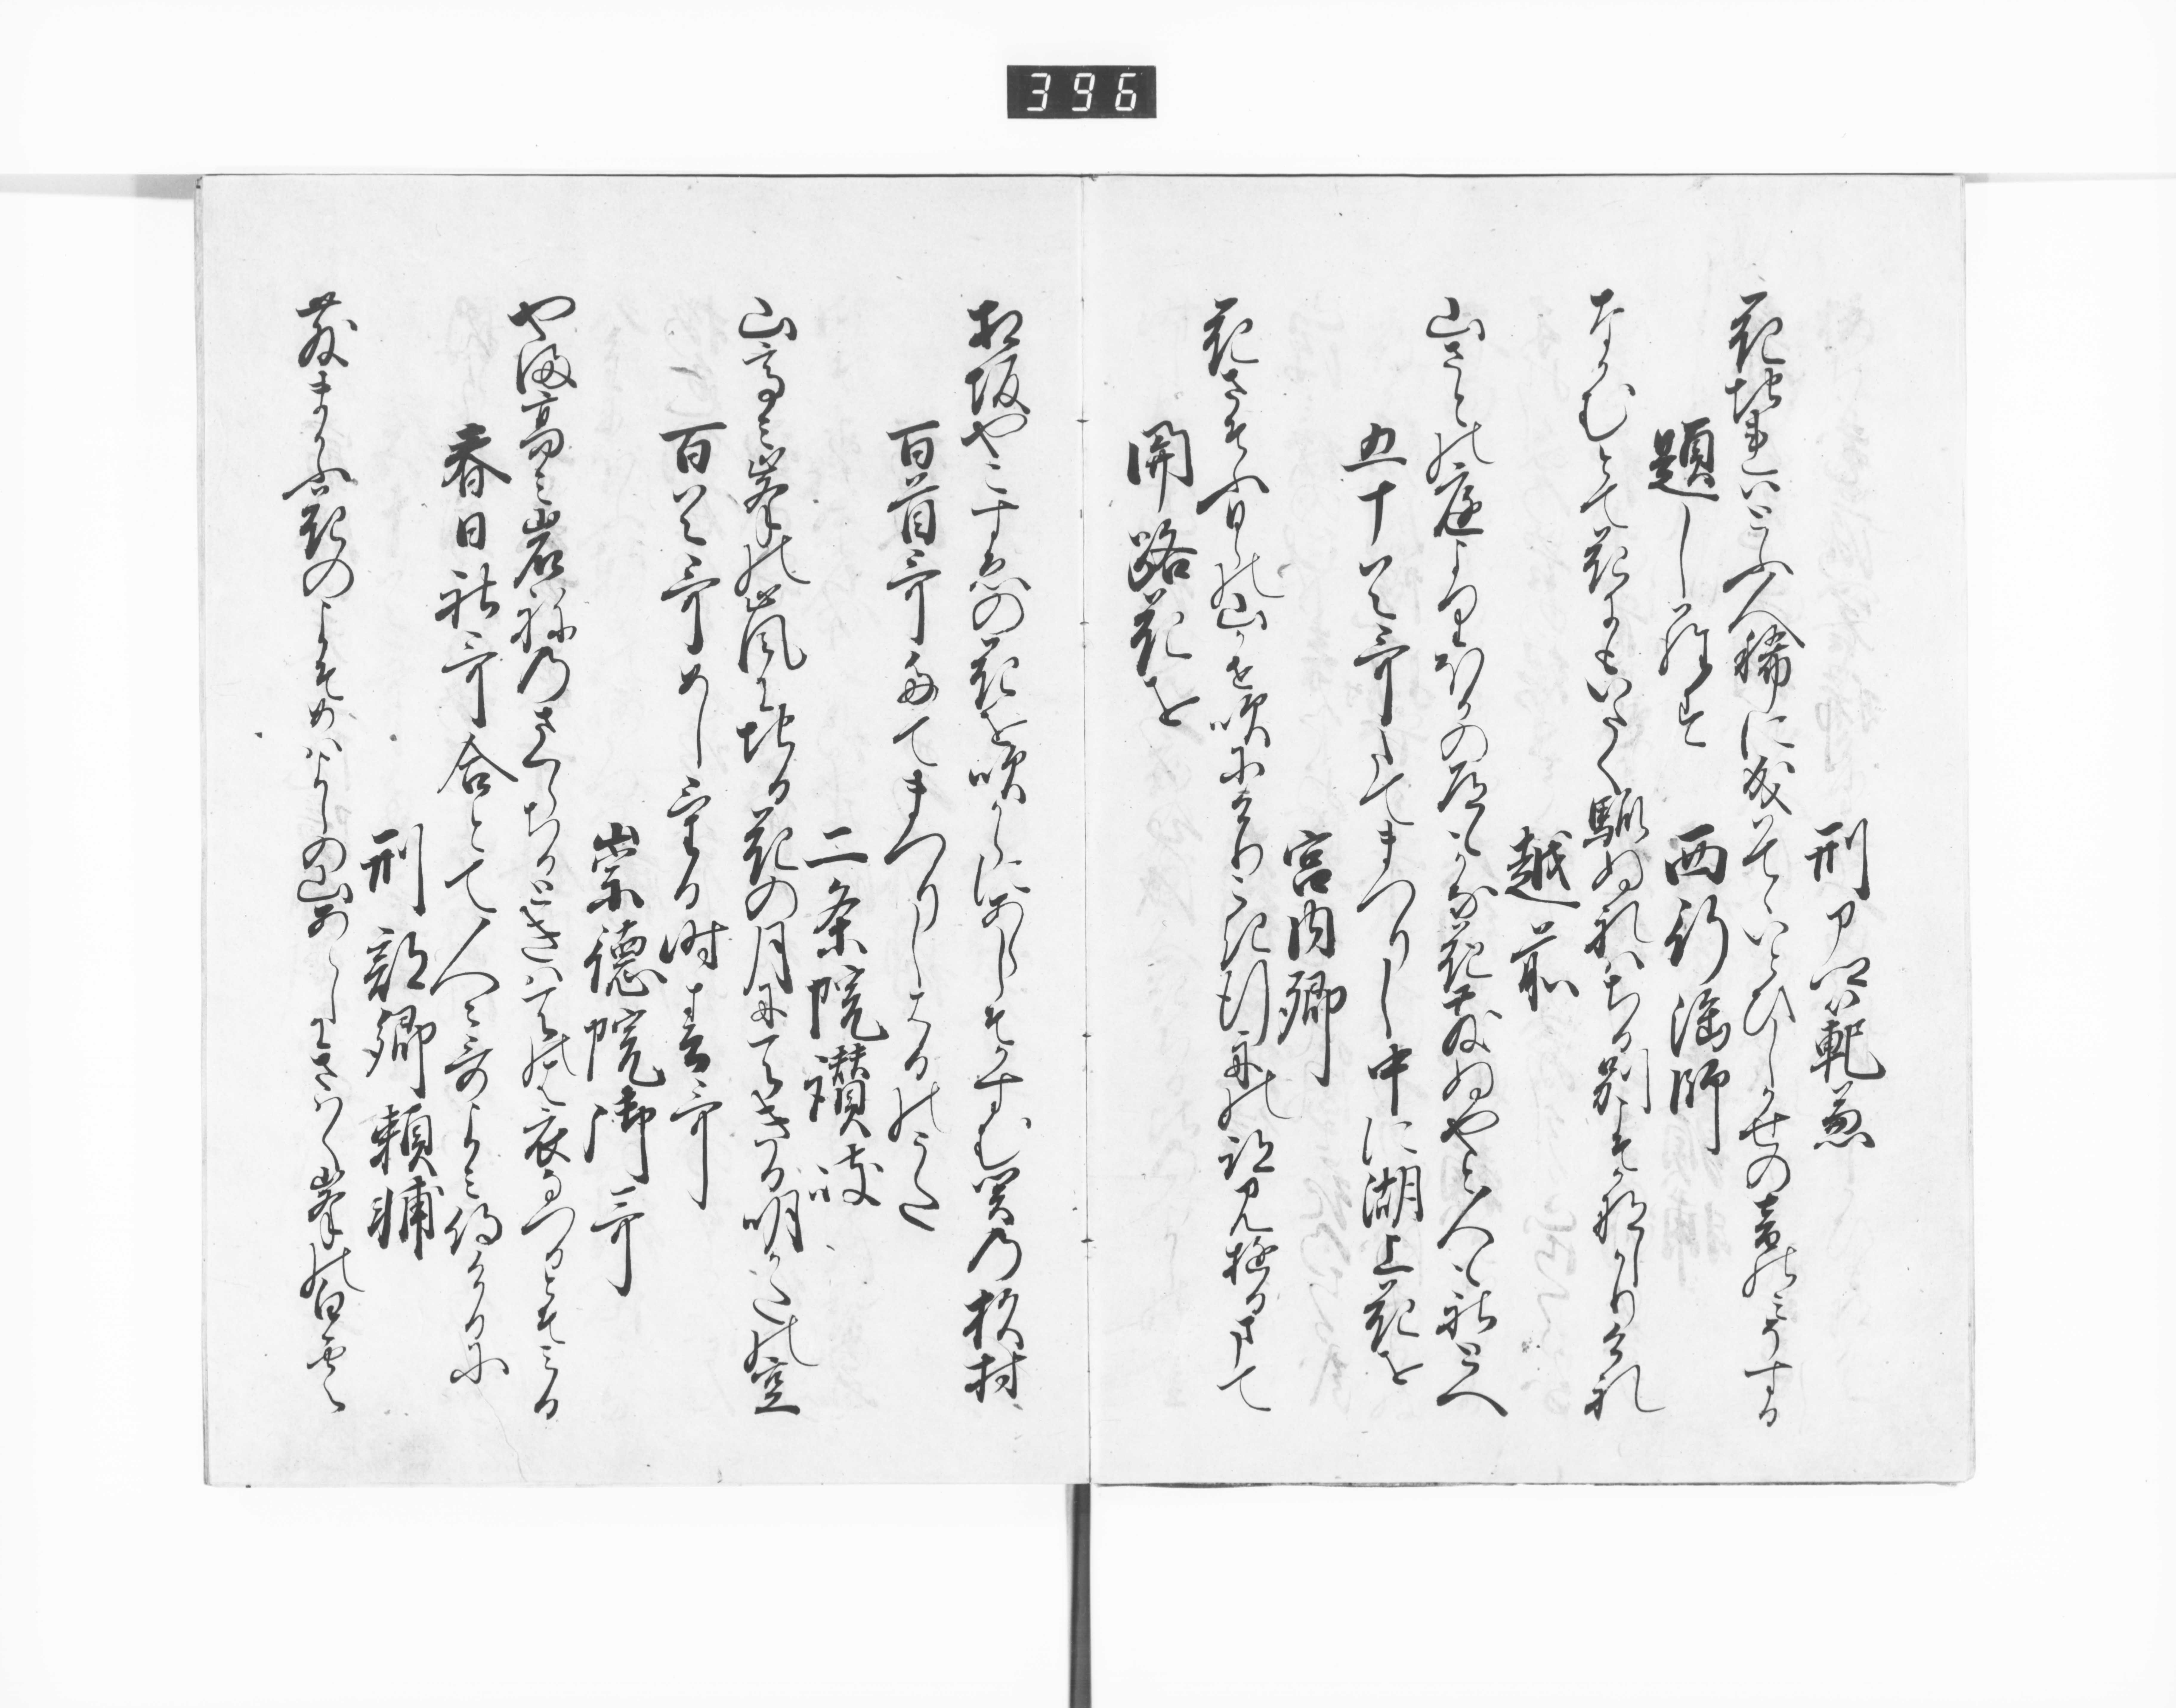 396
刑ア卿範兼
花ちれはとふ人稀に成はてゝいとひし風の音のみそする
題しらす
西行法師
なかむとて花にもいたく馴ぬれはちる別こそかなしかりけれ
越前
山さとの庭よりほかの道しかな花ちりぬやと人もこそとへ
五十首哥たてまつりし中に湖上花を
宮内卿
花さそふひらの山かせ吹にけりこき行舟の跡見ゆるまて
関路花を
相坂やこすゑの花を吹からに嵐そかすむ関乃杉村
百首哥たてまつりしはるのうた
二条院讃岐
山高み峯の嵐に散る花の月にあまきる明かたの空
百首哥めしける時春哥
崇徳院御哥
やま高み岩ねのさくらちるときはあまの羽衣なつるとそみる
春日社哥合とて人々哥よみ侍けるに
刑部卿頼輔
散まかふ花のよそめはよしの山あらしにさはく峯の白雲